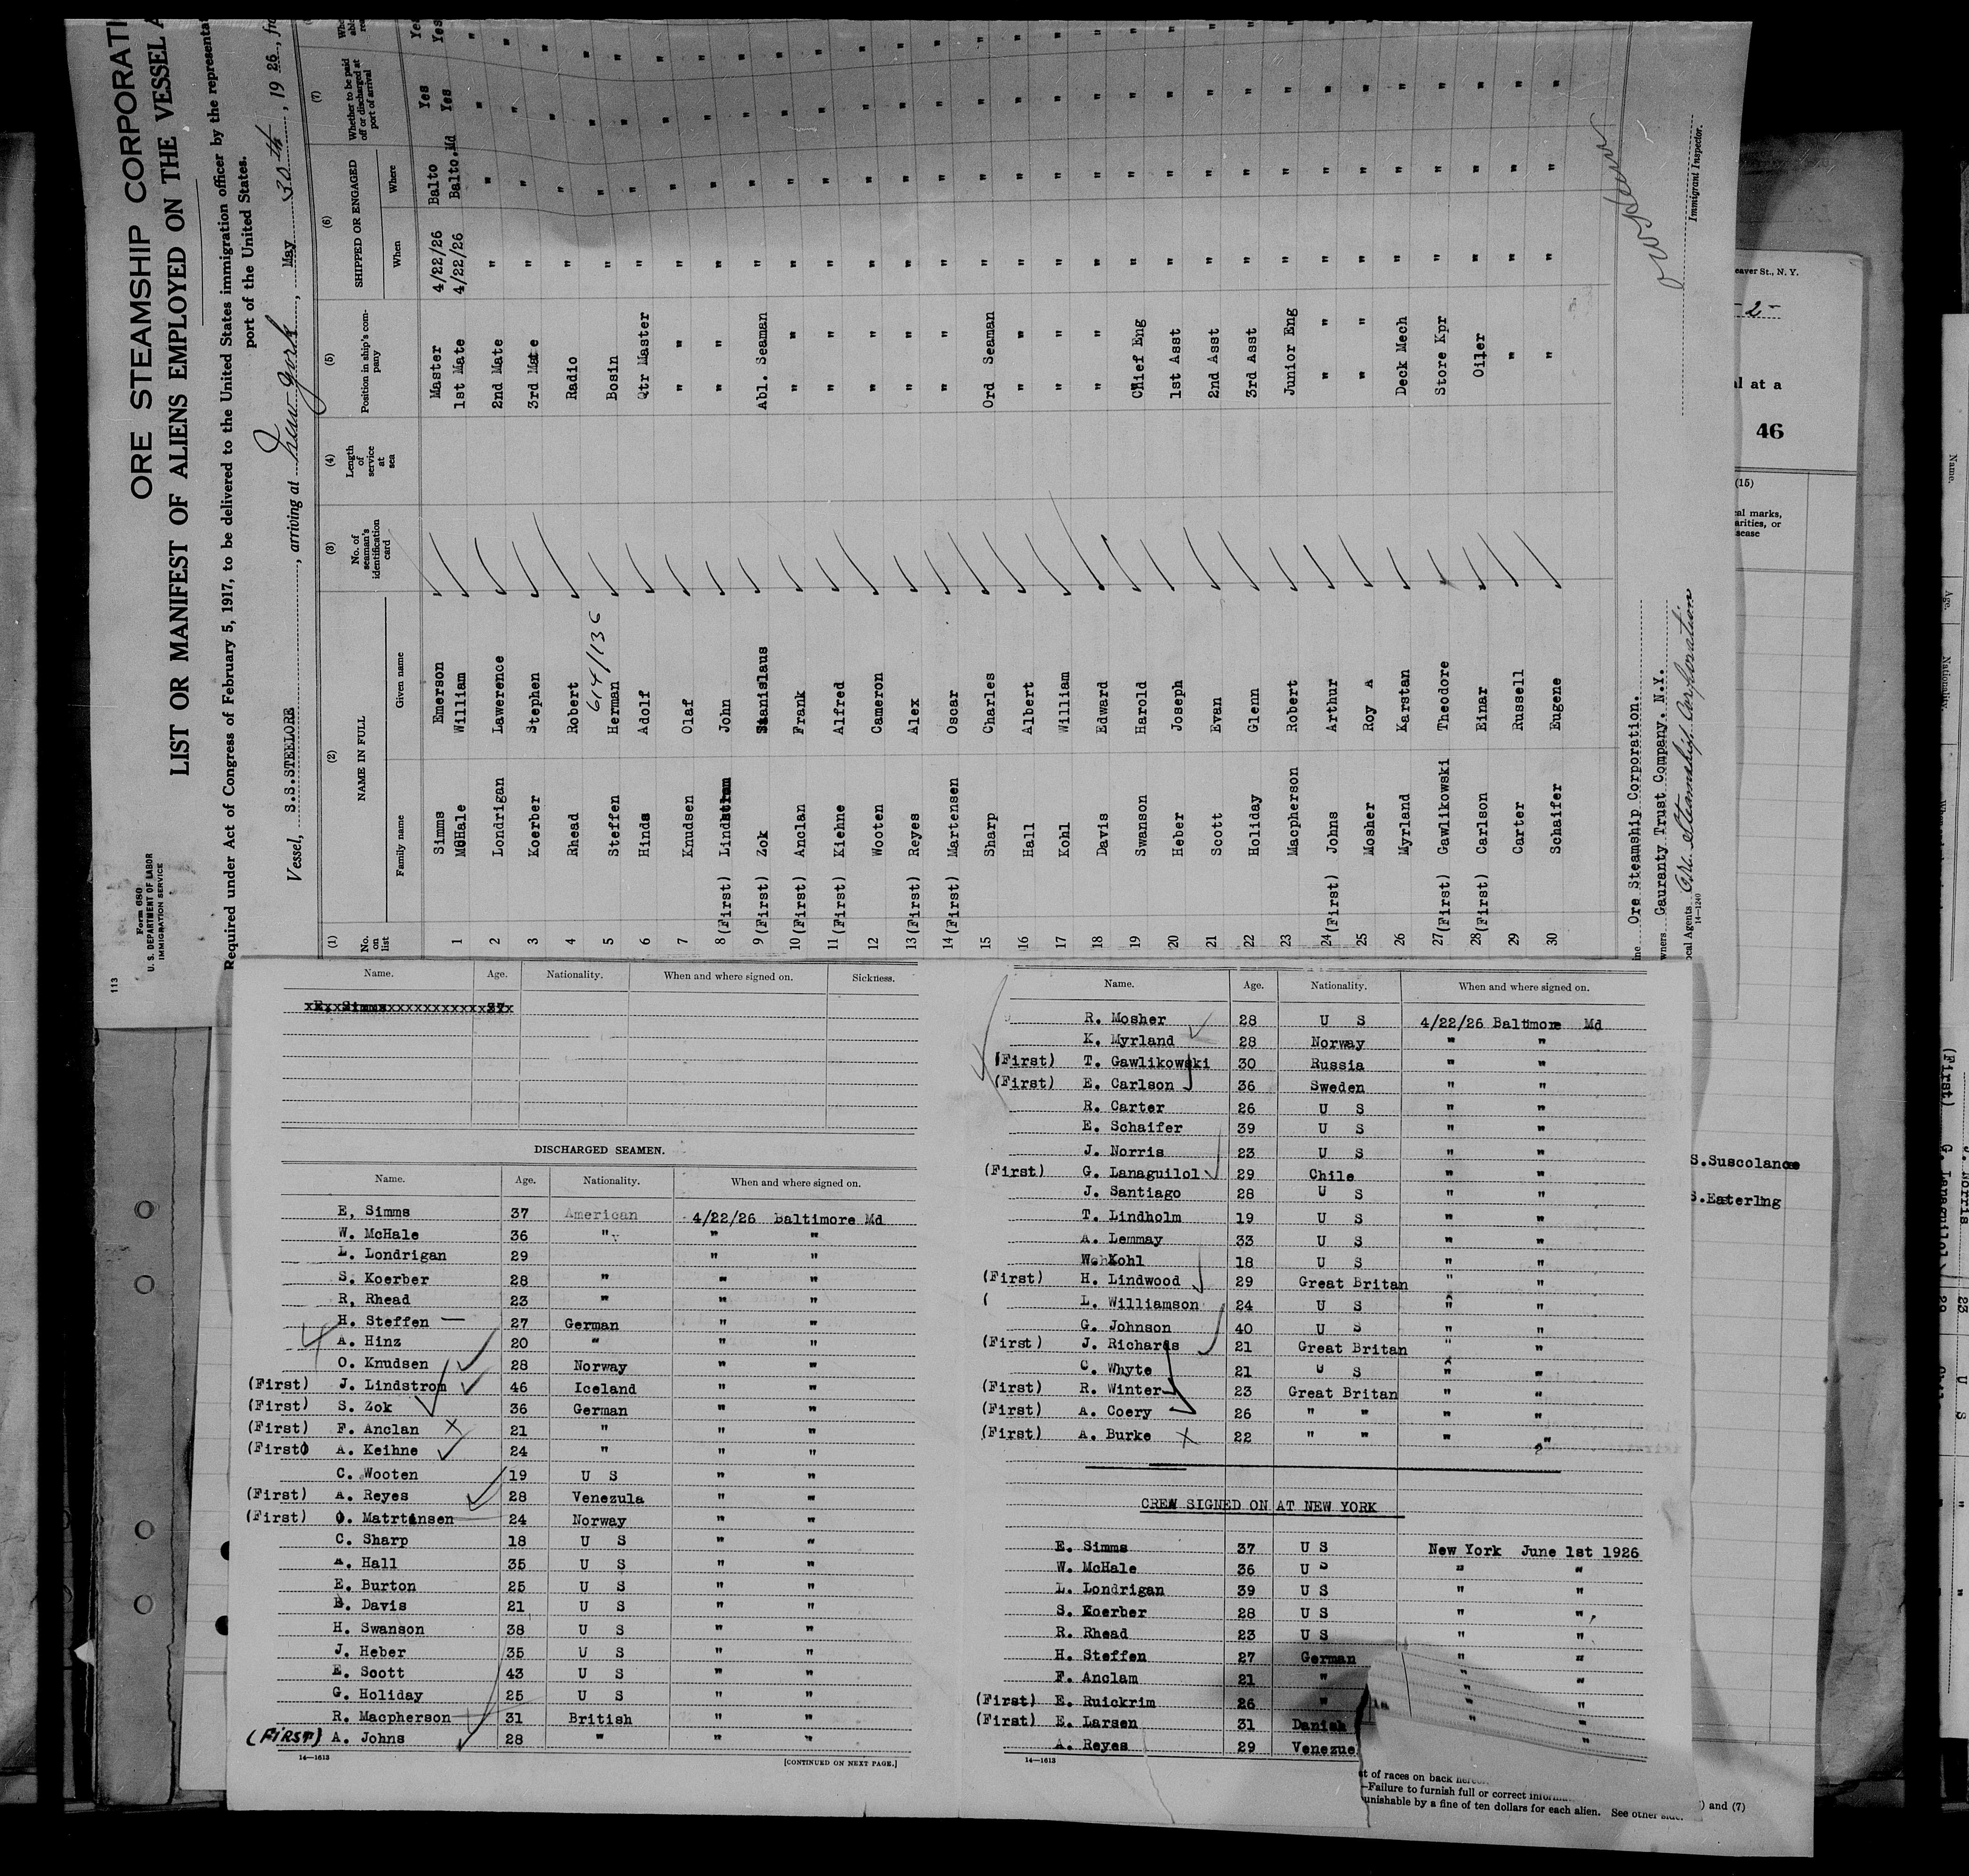 ORE STEAMSHIP CORPORATI
LIST OR MANIFEST OF ALIENS EMPLOYED ON THE VESSEL A
Required under Act of Congress of February 5, 1917, to be delivered to the United States immigration officer by the representa
port of the United States.
113
Form 680
U. S. DEPARTMENT OF LABOR
IMMIGRATION SERVICE
Vessel, S.S.STEELORE, arriving at New York, May 30th, 19 26, fro
(1) (2) (3) (4) (5) (6) (7)
No. on list NAME IN FULL No. of seaman's identification card Length of service at sea Position in ship's company SHIPPED OR ENGAGED Whether to be paid off or discharged at port of arrival
Family name Given name When Where
Simms Emerson Master 4/22/26 Balto Yes Yes
1 McHale William 1st Mate 4/22/26 Balto.Md Yes Yes
2 Londrigan Lawerence 2nd Mate " " " "
3 Koerber Stephen 3rd Mate " " " "
4 Rhead Robert Radio " " " "
614/136
5 Steffen Herman Bosin " " " "
6 Hinds Adolf Qtr Master " " " "
7 Knudsen Olaf " " " " " "
8 (First) Lindstrom John " " " " " "
9 (First) Zok Stanislaus Abl. Seaman " " " "
10 (First) Anclan Frank " " " " " "
11 (First) Kiehne Alfred " " " " " "
12 Wooten Cameron " " " " " "
13 (First) Reyes Alex " " " " " "
14 (First) Martensen Oscar " " " " " "
15 Sharp Charles Ord Seaman " " " "
16 Hall Albert " " " " " "
17 Kohl William " " " " " "
18 Davis Edward " " " " " "
19 Swanson Harold Chief Eng " " " "
20 Heber Joseph 1st Asst " " " "
21 Scott Evan 2nd Asst " " " "
22 Holiday Glenn 3rd Asst " " " "
23 Macpherson Robert Junior Eng " " " "
24 (First) Johns Arthur " " " " " "
25 Mosher Roy A " " " " " "
26 Myrland Karstan Deck Mech " " " "
27 (First) Gawlikowski Theodore Store Kpr " " " "
28 (First) Carlson Einar Oiler " " " "
29 Carter Russell " " " "
30 Schaifer Eugene " " " "
ine Ore Steamship Corporation.
wners Gauranty Trust Company. N.Y.
ocal Agents Ore Steamship Corporation
14—1240
Immigrant Inspector.
eaver St., N. Y.
- 2 -
al at a
46
(15)
cal marks,
arities, or
sease
S.Suscolance
S.Easterling
Name. Age. Nationality. When and where signed on. Sickness.
E. Simms 37
DISCHARGED SEAMEN.
Name. Age. Nationality. When and where signed on.
E, Simms 37 American 4/22/26 Baltimore Md
W. McHale 36 " " "
L. Londrigan 29 " "
S. Koerber 28 " " "
R, Rhead 23 " " "
H. Steffen 27 German " "
A. Hinz 20 " " "
O. Knudsen 28 Norway " "
(First) J. Lindstrom 46 Iceland " "
(First) S. Zok 36 German " "
(First) F. Anclan 21 " " "
(First) A. Keihne 24 " " "
C. Wooten 19 U S " "
(First) A. Reyes 28 Venezula " "
(First) O. Matrtinsen 24 Norway " "
C. Sharp 18 U S " "
A. Hall 35 U S " "
E. Burton 25 U S " "
E. Davis 21 U S " "
H. Swanson 38 U S " "
J. Heber 35 U S " "
E. Scott 43 U S " "
G. Holiday 25 U S " "
R. Macpherson 31 British " "
(FIRST) A. Johns 28 " " "
14—1613 [CONTINUED ON NEXT PAGE.]
Name. Age. Nationality. When and where signed on.
R. Mosher 28 U S 4/22/26 Baltimore Md
K. Myrland 28 Norway " "
(First) T. Gawlikowski 30 Russia " "
(First) E. Carlson 36 Sweden " "
R. Carter 26 U S " "
E. Schaifer 39 U S " "
J. Norris 23 U S " "
(First) G. Lanaguilol 29 Chile " "
J. Santiago 28 U S " "
T. Lindholm 19 U S " "
A. Lemmay 33 U S " "
W. Kohl 18 U S " "
(First) H. Lindwood 29 Great Britan " "
( L. Williamson 24 U S " "
G. Johnson 40 U S " "
(First) J. Richards 21 Great Britan " "
C. Whyte 21 U S " "
(First) R. Winter 23 Great Britan " "
(First) A. Coery 26 " " " "
(First) A. Burke 22 " " " "
CREW SIGNED ON AT NEW YORK
E. Simms 37 U S New York June 1st 1926
W. McHale 36 U S " "
L. Londrigan 39 U S " "
S. Koerber 28 U S " "
R. Rhead 23 U S " "
H. Steffen 27 German " "
F. Anclam 21 " " "
(First) E. Ruickrim 26 " " "
(First) E. Larsen 31 Danish " "
A. Reyes 29 Venezue "
14—1613
st of races on back
—Failure to furnish full or correct ) and (7)
unishable by a fine of ten dollars for each alien. See other side.
Name.
Age.
Nationality.